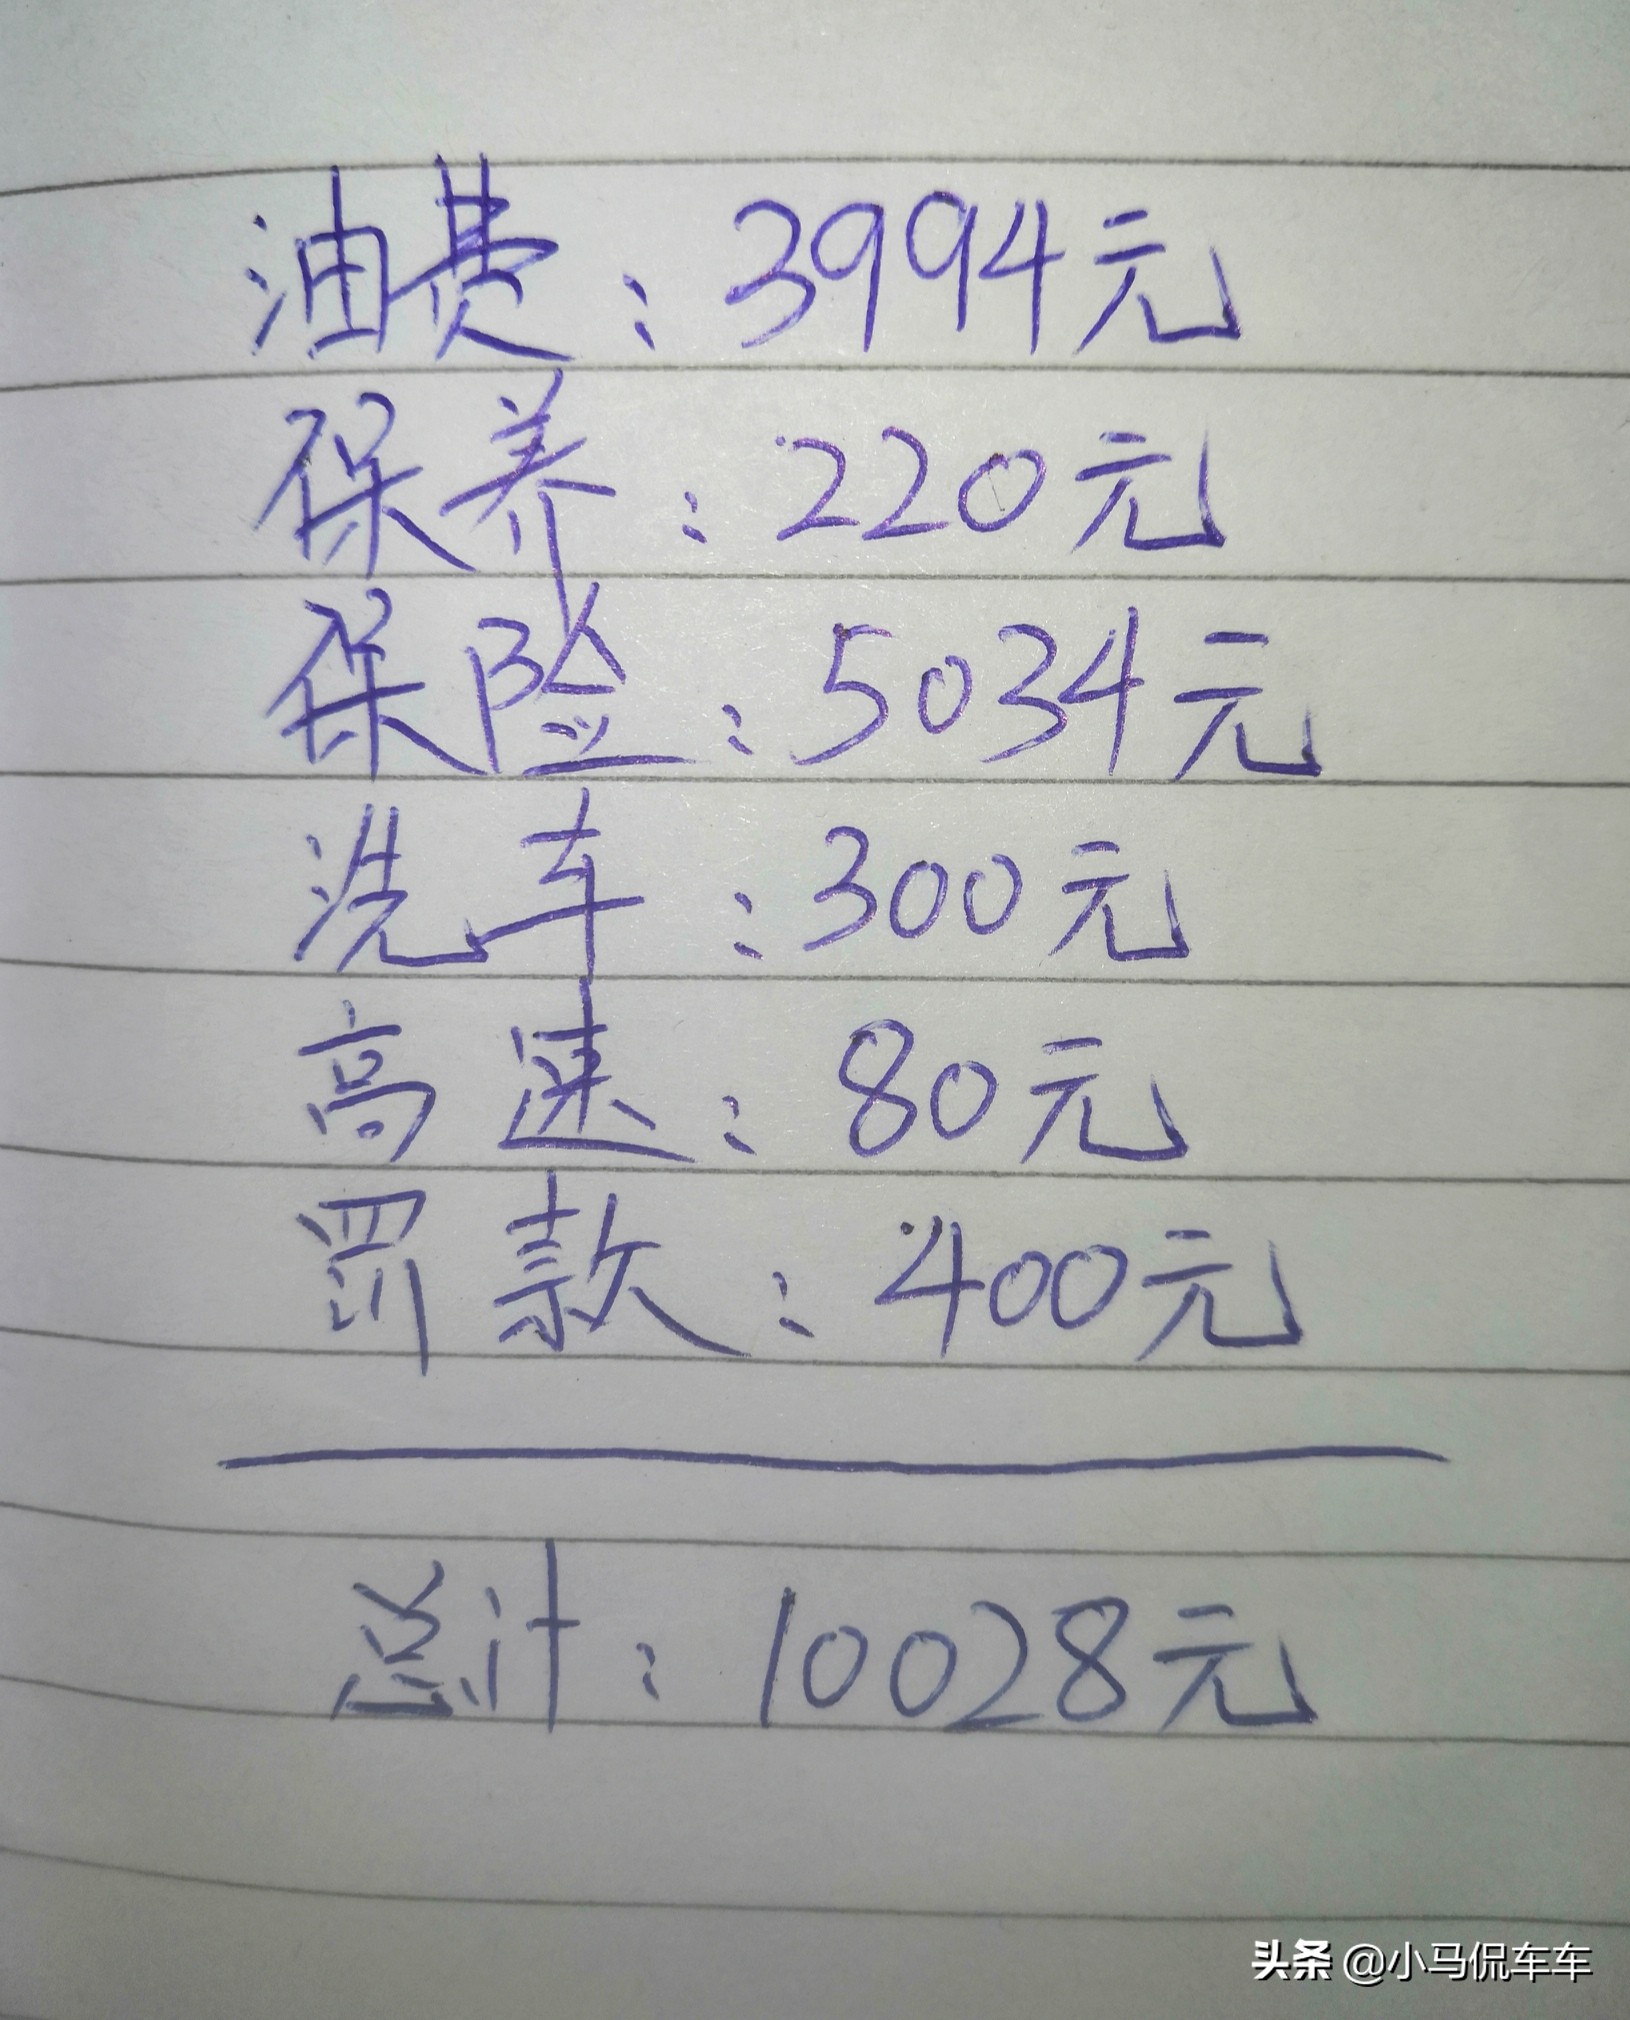 油费：3994元
保养：220元
保险：5034元
洗车：300元
高速：80元
罚款：400元
总计：10028元
头条 @小马侃车车